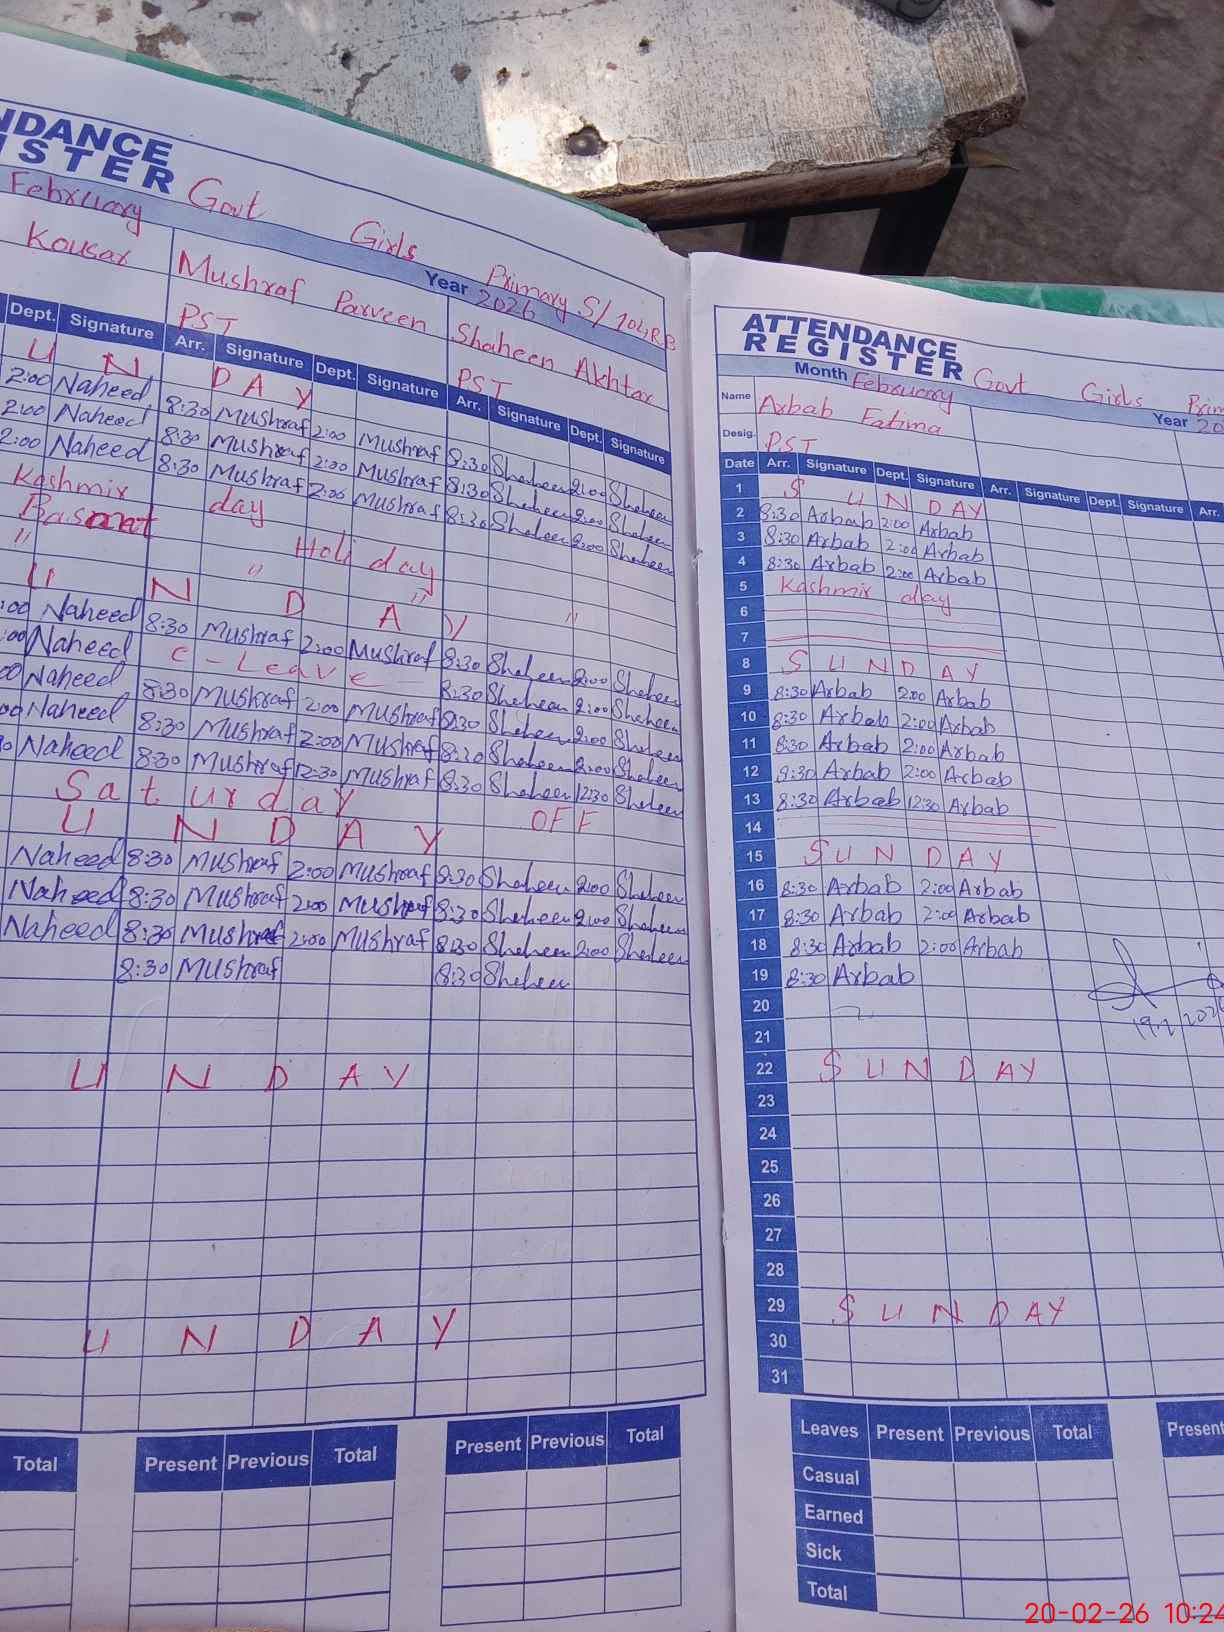 NDANCE
ISTER
February Govt Girls Primary S/ 104RB
Year 2026
Kousar Mushraf Parveen Shaheen Akhtar
PST PST
Dept. Signature Arr. Signature Dept. Signature Arr. Signature Dept. Signature
U N D A Y
2:00 Naheed 8:30 Mushraf 2:00 Mushraf 8:30 Shaheen 2:00 Shaheen
2:00 Naheed 8:30 Mushraf 2:00 Mushraf 8:30 Shaheen 2:00 Shaheen
2:00 Naheed 8:30 Mushraf 2:00 Mushraf 8:30 Shaheen 2:00 Shaheen
Kashmir day
Basant Holi day
" " " "
U N D A Y
:00 Naheed 8:30 Mushraf 2:00 Mushraf 8:30 Shaheen 2:00 Shaheen
:00 Naheed C - Leave - 8:30 Shaheen 2:00 Shaheen
00 Naheed 8:30 Mushraf 2:00 Mushraf 8:30 Shaheen 2:00 Shaheen
00 Naheed 8:30 Mushraf 2:00 Mushraf 8:30 Shaheen 2:00 Shaheen
30 Naheed 8:30 Mushraf 12:30 Mushraf 8:30 Shaheen 12:30 Shaheen
Saturday OFF
U N D A Y
Naheed 8:30 Mushraf 2:00 Mushraf 8:30 Shaheen 2:00 Shaheen
Naheed 8:30 Mushraf 2:00 Mushraf 8:30 Shaheen 2:00 Shaheen
Naheed 8:30 Mushraf 2:00 Mushraf 8:30 Shaheen 2:00 Shaheen
8:30 Mushraf 8:30 Shaheen
U N D A Y
U N D A Y
Total Present Previous Total Present Previous Total
ATTENDANCE
REGISTER
Month February Govt Girls Prim
Year 20
Name Arbab Fatima
Desig. PST
Date Arr. Signature Dept. Signature Arr. Signature Dept. Signature Arr.
1 S U N D A Y
2 8:30 Arbab 2:00 Arbab
3 8:30 Arbab 2:00 Arbab
4 8:30 Arbab 2:00 Arbab
5 Kashmir day
6
7
8 S U N D A Y
9 8:30 Arbab 2:00 Arbab
10 8:30 Arbab 2:00 Arbab
11 8:30 Arbab 2:00 Arbab
12 8:30 Arbab 2:00 Arbab
13 8:30 Arbab 12:30 Arbab
14
15 S U N D A Y
16 8:30 Arbab 2:00 Arbab
17 8:30 Arbab 2:00 Arbab
18 8:30 Arbab 2:00 Arbab
19 8:30 Arbab
20
21
22 S U N D A Y
23
24
25
26
27
28
29 S U N D A Y
30
31
Leaves Present Previous Total Present
Casual
Earned
Sick
Total
20-02-26 10:24